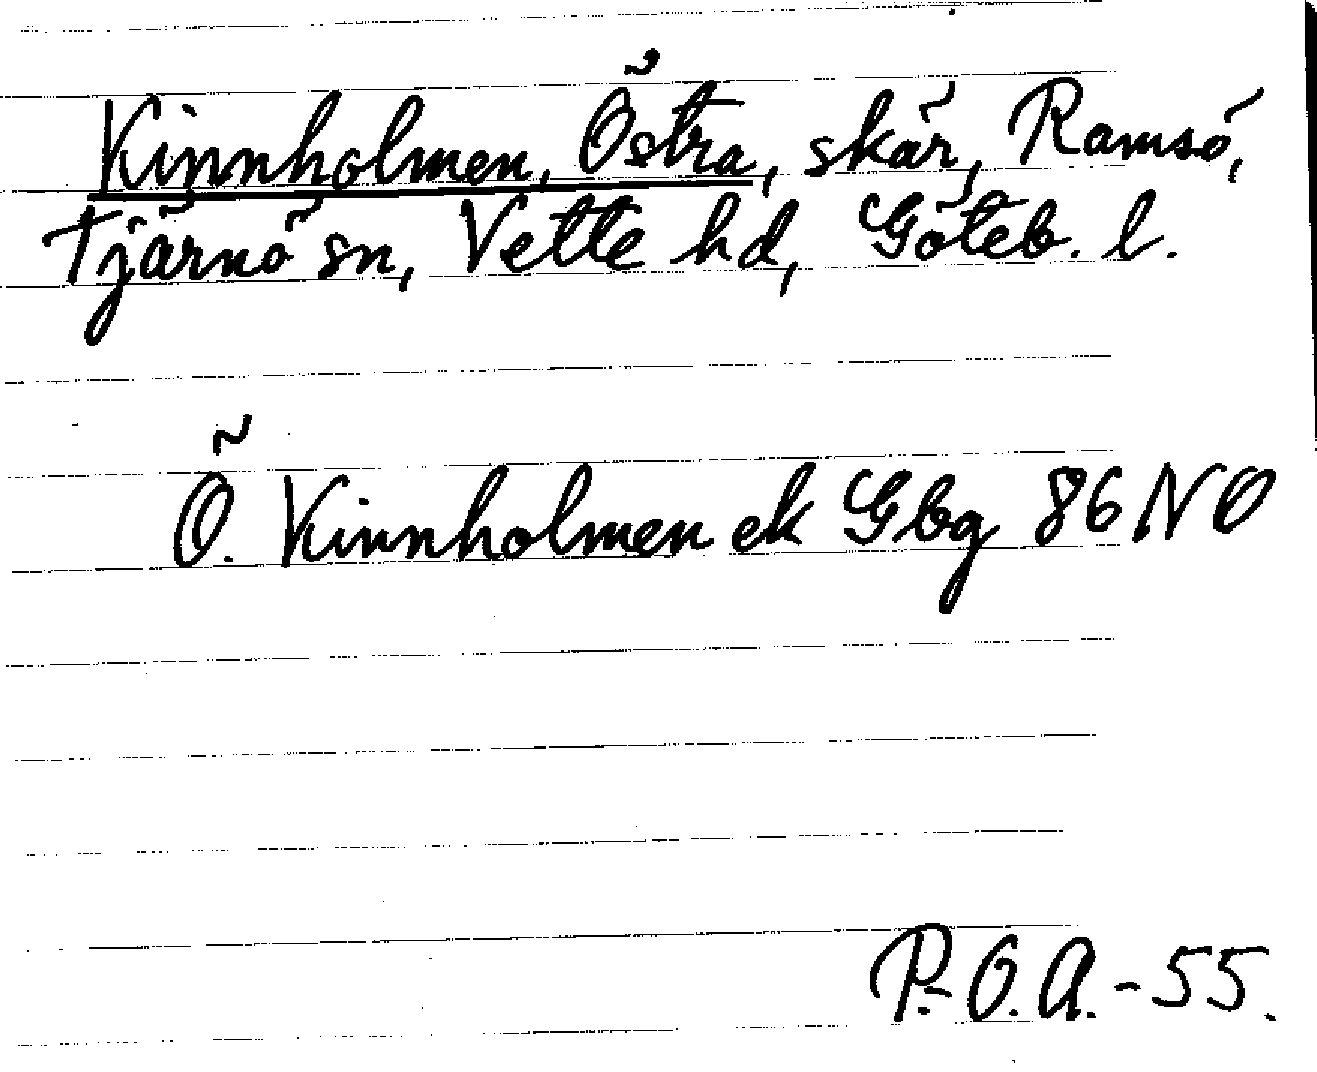 Kinnholmen, Östra, skär, Ramsö,
Tjärnö sn, Vette hd, Göteb. l.
Ö. Kinnholmen ek Gbg 86 NO
P.-O.A.-55.